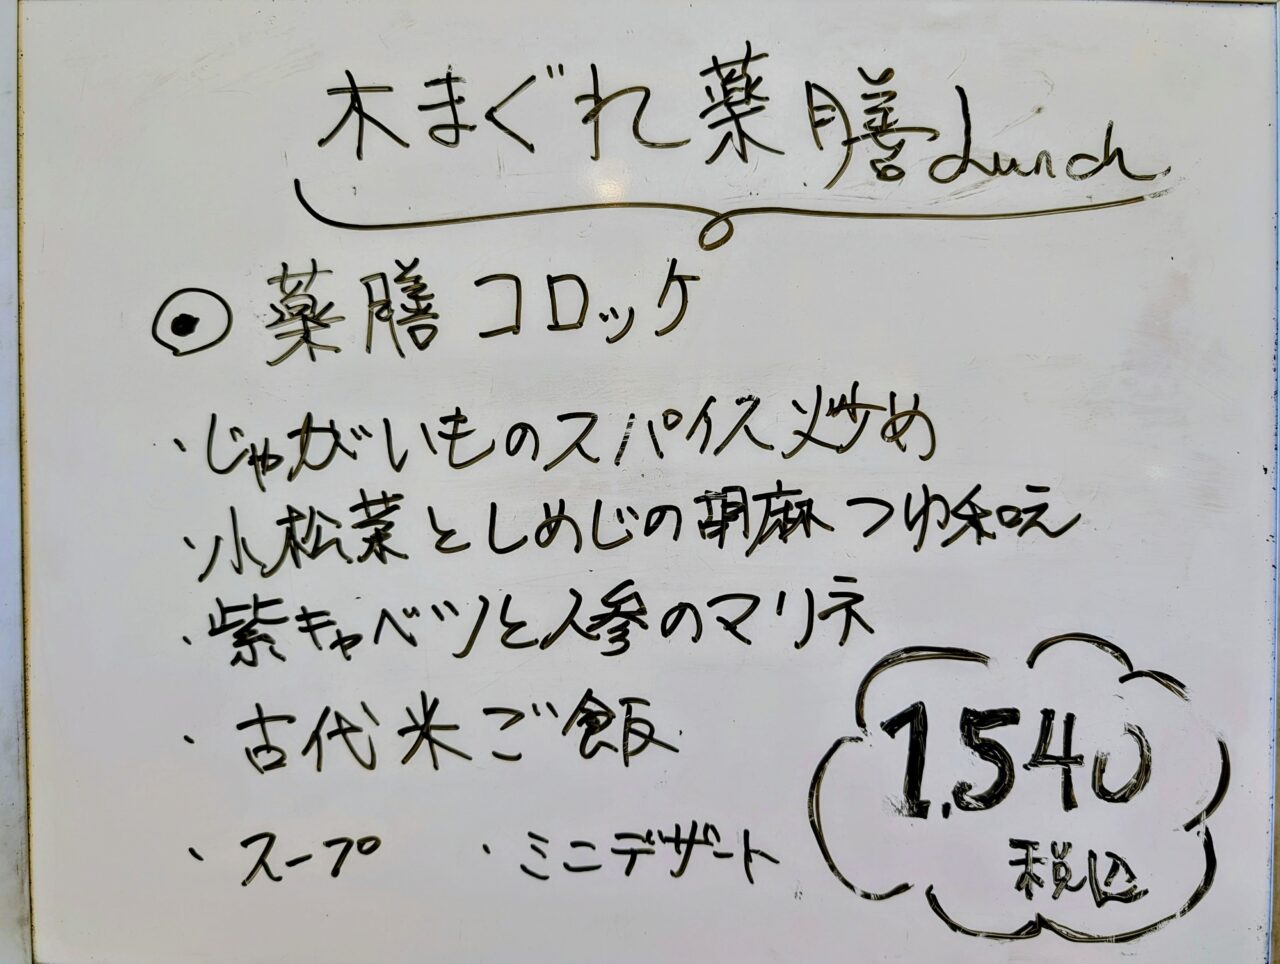 木まぐれ薬膳Lunch
薬膳コロッケ
・じゃがいものスパイス炒め
・小松菜としめじの胡麻つゆ和え
・紫キャベツと人参のマリネ
・古代米ご飯
・スープ ・ミニデザート
1,540
税込